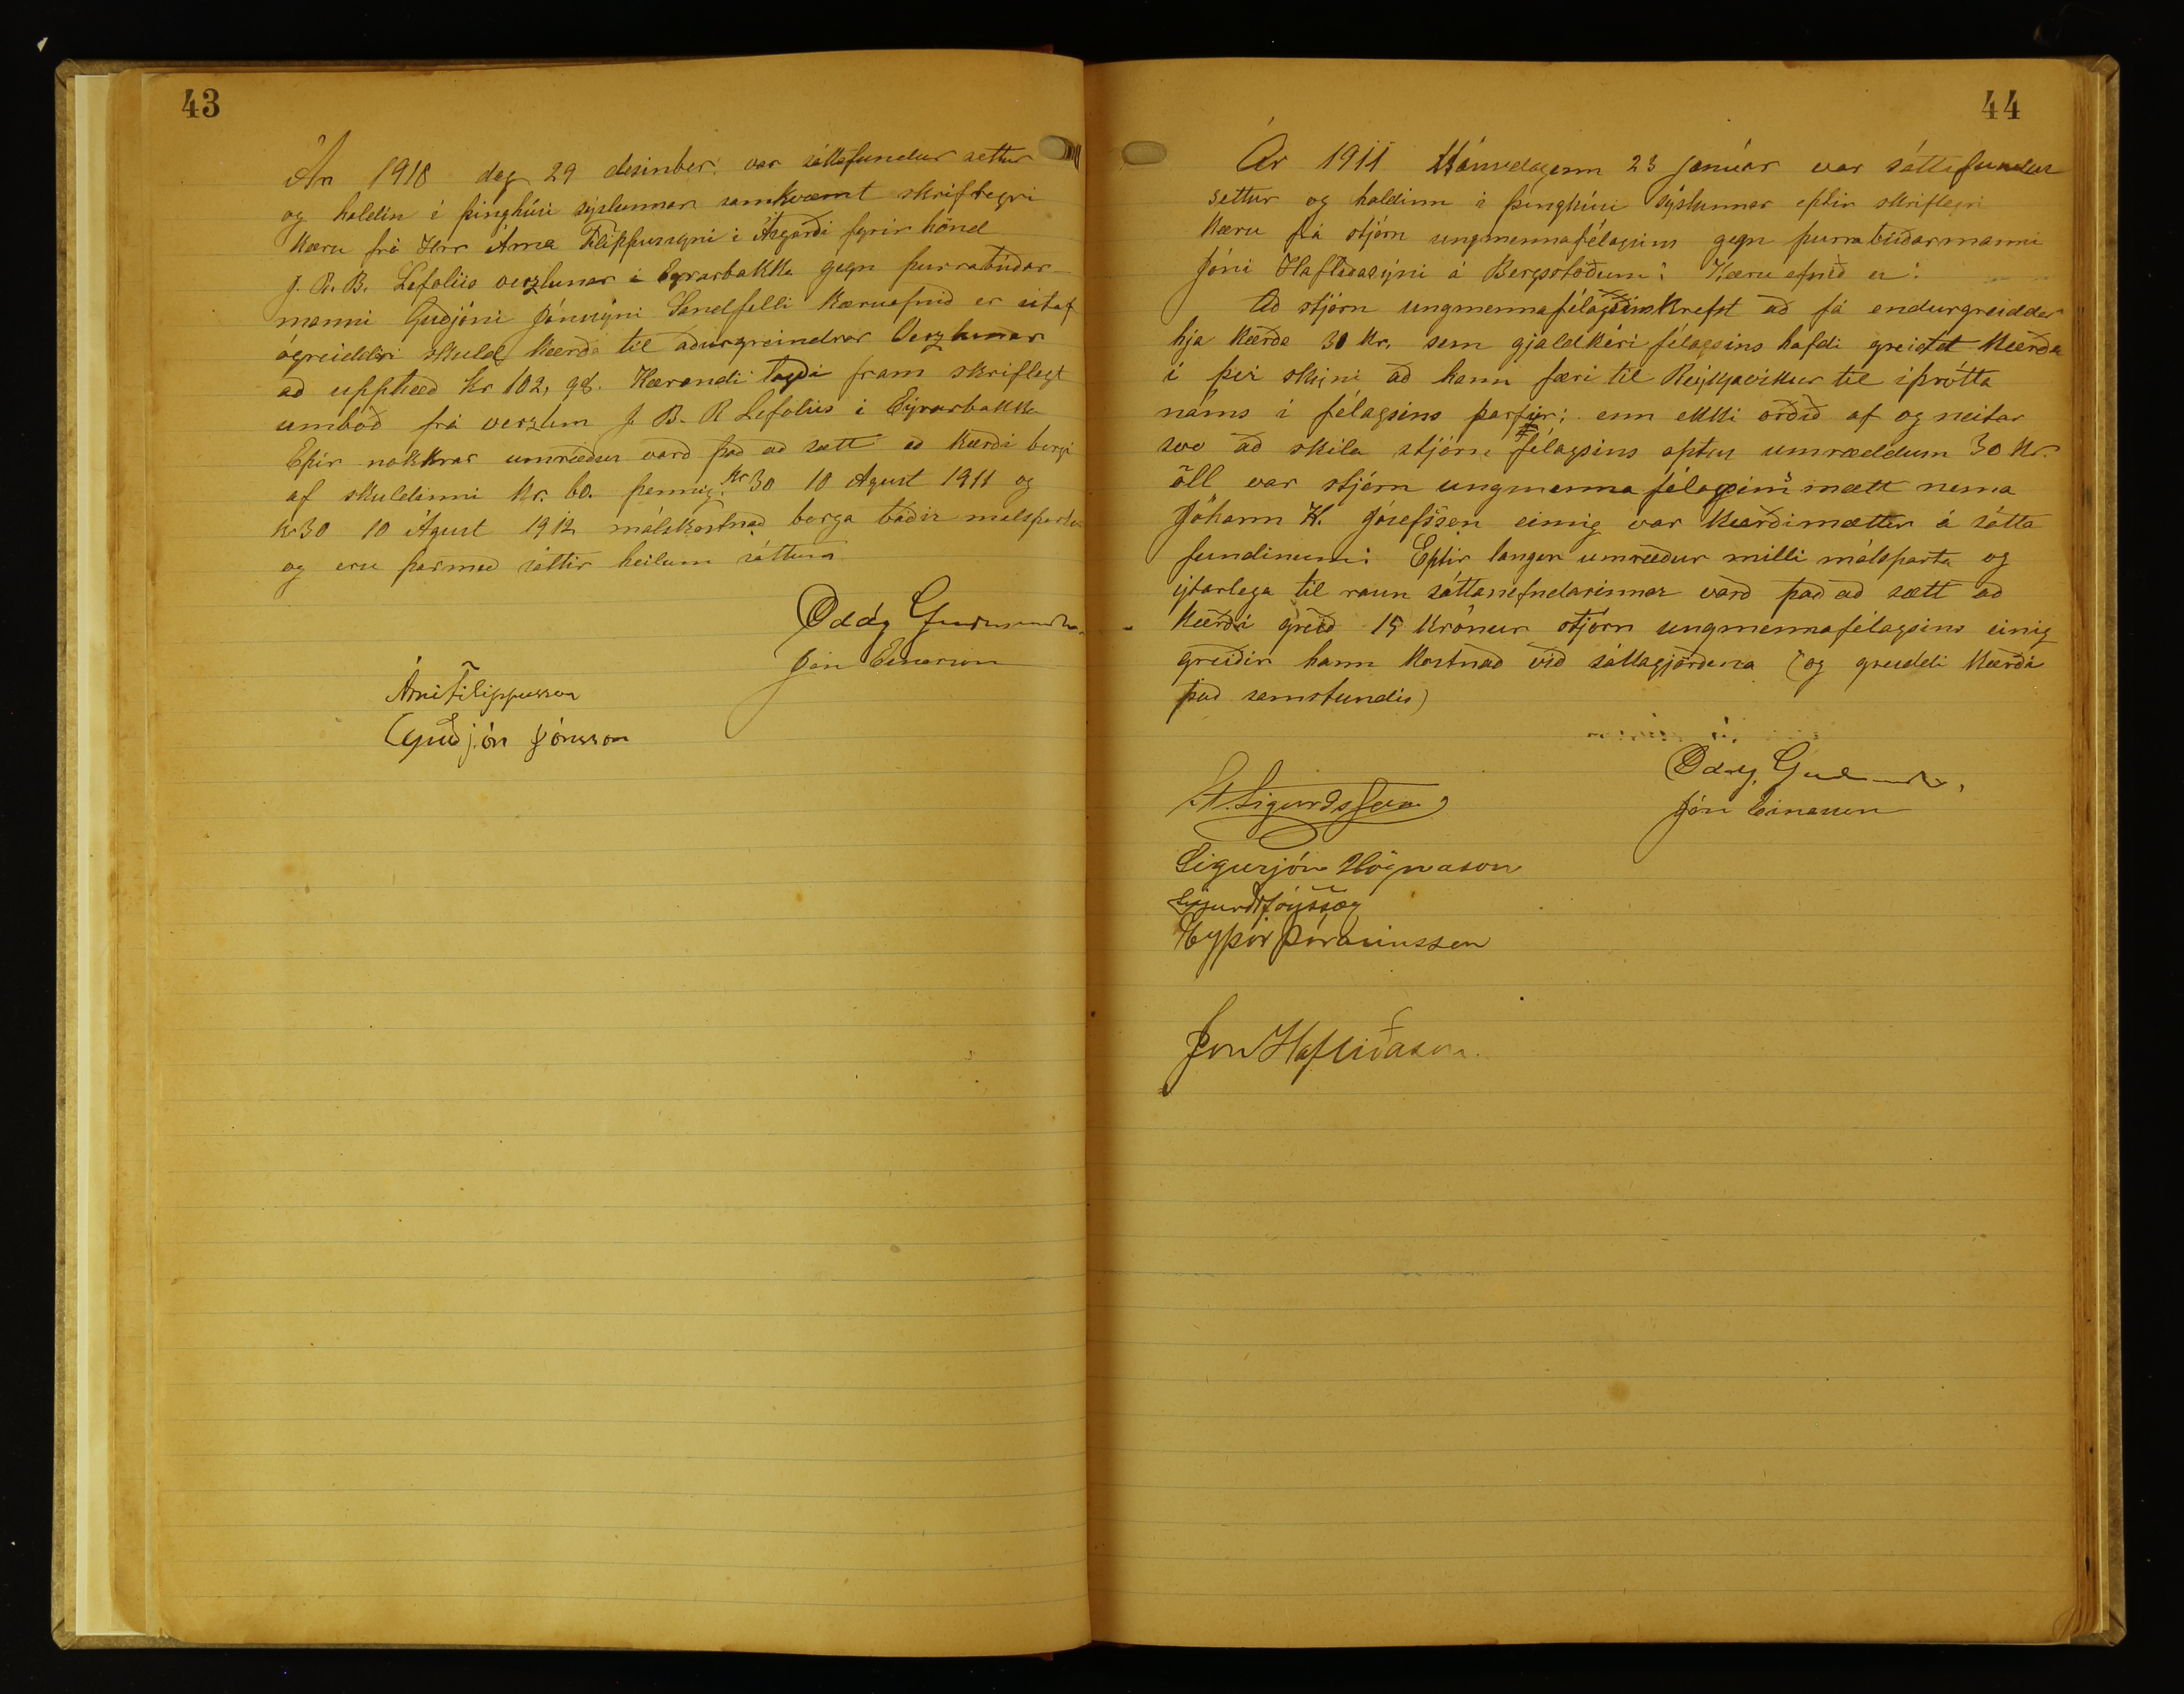 43
Ár 1910 dag 29 desinber. var sáttafundur settur
og haldin í þinghúsi sýslunnar samkvæmt skriflegri
kæru frá Hrr Árna Filippussyni í Ásgarði fyrir hönd
J. R. B. Lefoliis verzlunar á Eyrarbakka gegn þurrabúðar-
manni Guðjóni Jónssyni Sandfelli Kæruefnið er útaf
ógreiddri skuld kærða til áðurgreindrar Verzlunar
að upphæð kr 102,98. Kærandi lagði fram skriflegt
umboð frá verzlun J. B. R Lefoliis á Eýrarbakka
Eptir nokkrar umræður varð það að sætt að kærði borgi
af skuldinni kr. 60. þennig. kr 30 10 Agust 1911 og
kr 30 10 Ágúst 1912 málskostnað borga báðir málspartar
og eru þarmeð sáttir heilum sáttum
Oddg Guðmundss.
Jón Einarsson
Árni Filippusson
Guðjón Jónsson
44
Ár 1911 Mánudaginn 23 Janúar var sáttafundur
settur og haldinn í þinghúsi sýslunnar eptir skriflegri
kæru frá stjórn ungmennafélagsins gegn þurrabúðarmanni
Jóni Hafliðasýni á Bergsstöðum: Kæru efnið er:
Að stjórn ungmennafélagsins krefst að fá endurgreiddar
hjá kærða 30 kr. sem gjaldkéri félagsins hafdi greidt kærða
í því skýni að hann færi til Reykjavikur til íþrótta
náms í félagsins þarfir; enn ekki orðið af og neitar
svo að skila stjórn félagsins aptur umræddum 30 kr.
öll var stjórn ungmenna félagsins mætt nema
Jóhann H. Jósefssen einnig var kærði mættur á sátta
fundinum: Eptir langar umræður milli málsparta og
ýtarlega til raun sáttanefndarinnar varð það að sætt að
kærði greið 15 krónur stjórn ungmennafélagsins einig
greiðir hann kostnað við sáttagjörðina (og greiddi kærði
það samstundis)
Oddg. Guðmundss,
Jón Einarsson
St. Sigurðsson
Sigurjón Högnason
Eyþór Þórarinsson
Jón Hafliðason.